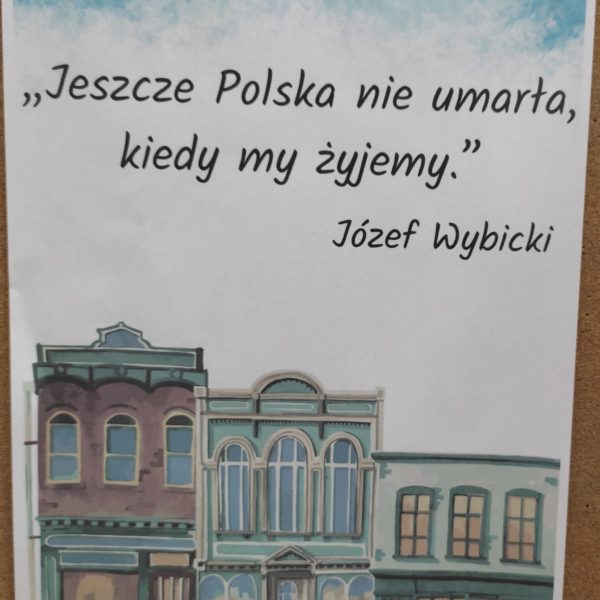 „Jeszcze Polska nie umarła,
kiedy my żyjemy.”
Józef Wybicki